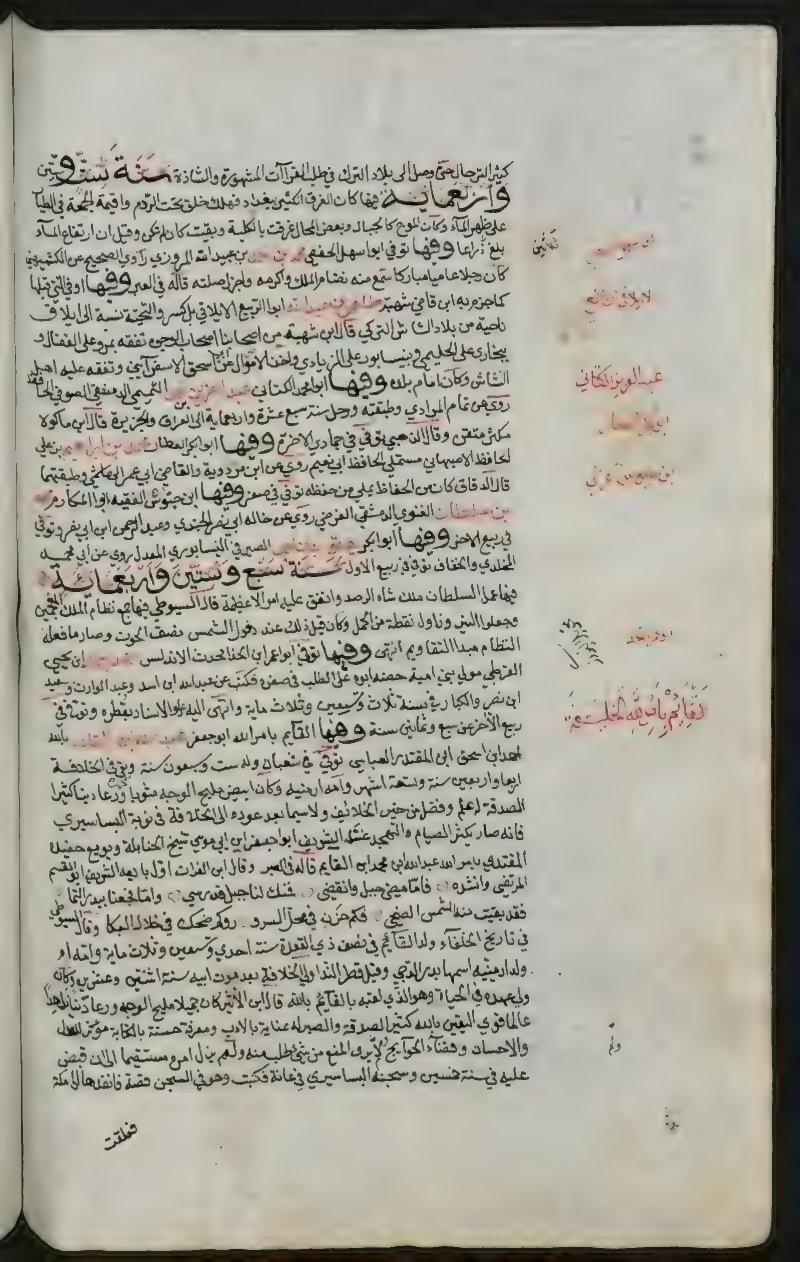 كثير الترحال حتى وصل الى بلاد الترك في طلب القراآت المشهورة والشاذة سنة ست وستين
واربعماية فيها كان الغرق الكثير ببغداد فهلك خلق تحت الردم واقيمة الجمعة في الطيار
على ظهر الماء وكان الموج كالجبال وبعض المحال غرقت بالكلية وبقيت كان لم تكن وقيل ان ارتفاع الماء
بلغ ثلاثين ذراعا وفيها توفي ابو سهل الحفصي محمد بن احمد بن عبيد الله المروزي راوي الصحيح عن الكشميهني
كان رجلا عاميا مباركا سمع منه نظام الملك واكرمه واجزل صلته قاله في العبر وفيها اوفي التي قبلها
كما جزم به ابن قاضي شهبة طاهر بن عبد الله ابو الربيع الايلاقي بكسر والتحتية نسبة الى ايلاق
ناحية من بلاد الشاش التركي قال ابن شهبة من اصحابنا اصحاب الوجوه تفقه بمرو على القفال و
ببخارى على الحليمي وبنيسابور على الزيادي واخذ الاصول عن ابي اسحق الاسفرايني وتفقه عليه اهل
الشاش وكان امام بلده وفيها ابو محمد الكتاني عبد العزيز بن التميمي الدمشقي الصوفي الحافظ
روي عن تمام الرازي وطبقته ورحل سنة سبع عشرة واربعماية الى العراق والجزيرة قال ابن ماكولا
مكثر متقن وقال الذهبي توفي في جمادي الاخرة وفيها ابو بكر العطار محمد بن ابراهيم بن علي
الحافظ الاصبهاني مستملي الحافظ ابي نعيم روي عن ابن مردوية والقاضي ابي عمر الهاشمي وطبقتهما
قال الدقاق كان من الحفاظ يملي من حفظه توفي في صفر وفيها ابن حيوس الفقيه ابو المكارم
بن سلطان الغنوي الدمشقي الفرضي روي عن خاله ابي نصر الجندي وعبد الرحمن ابن ابي نصر وتوفي
في ربيع الاخر وفيها ابو بكر الصيرفي النيسابوري المعدل روي عن ابي محمد
المخلدي والخفاف توفي في ربيع الاول سنة سبع وستين واربعماية
فيها عمل السلطان ملك شاه الرصد وانفق عليه اموالا عظيمة قال السيوطي فيها جمع نظام الملك المنجمين
وجعلوا النيروز اول نقطة من الحمل وكان قبل ذلك عند دخول الشمس نصف الحوت وصار ما فعله
النظام مبدا التقاويم انتهى وفيها توفي ابو عمر ابن الحذا محدث الاندلس احمد بن محمد ابن يحيى
القرطبي مولى بني امية حضه ابوه على الطلب في صغره فكتب عن عبد الله ابن اسد وعبد الوارث وسعيد
ابن نصر والكبار في سنة ثلاث وتسعين وثلاث ماية وانتهى اليه علو الاسناد بقطره وتوفي في
ربيع الاخر عن سبع وثمانين سنة وفيها القايم بامر الله ابو جعفر عبد الله بن القادر بالله
احمد ابن اسحق ابن المقتدر العباسي توفي في شعبان وله ست وسبعون سنة وبقي في الخلافة
اربعا واربعين سنة وتسعة اشهر وامه ارمنية وكان ابيض مليح الوجه مشربا ورعا دينا كثير
الصدقة له علم وفضل من خير الخلائف ولا سيما بعد عوده الى الخلافة في نوبة البساسيري
فانه صار يكثر الصيام والتهجد غسله الشريف ابو جعفر ابن ابي موسي شيخ الحنابلة وبويع حفيده
المقتدي بامر الله عبد الله ابن محمد ابن القايم قاله في العبر وقال ابن الفرات اول بايعه الشريف ابو القسم
المرتضي وانشده فاما مضى جبل وانقضى فمنك لنا جبل قد رسي واما فجعنا ببدر التمام
فقد بقيت منه شمس الضحى فكم حزن في محل السرور وكم ضحك في خلال البكا وقال السيوطي
في تاريخ الخلفاء ولد القائم في نصف ذي القعدة سنة احدي وتسعين وثلاث ماية وامه ام
ولد ارمنية اسمها بدر الدجي وقيل قطر الندا ولي الخلافة بعد موت ابيه سنة اثنتين وعشرين وكان
ولي عهده في الحياة وهو الذي لقبه بالقايم بالله قال ابن الاثير كان جميلا مليح الوجه ورعا دينا زاهدا
عالما قوي اليقين بالله كثير الصدقة والصبر له عناية بالادب ومعرفة حسنة بالكتابة موثرا للعدل
والاحسان وقضاء الحوايج لا يرى المنع من شئ طلب منه ولم يزل امره مستقيما الى ان قبض
عليه في سنة خمسين وسجنه البساسيري في عانة فكتب وهو في السجن قصة فانفذها الى مكة
فعلقت
ثلاثين
عبد العزيز الكتاني
القايم بامر الله الخليفة